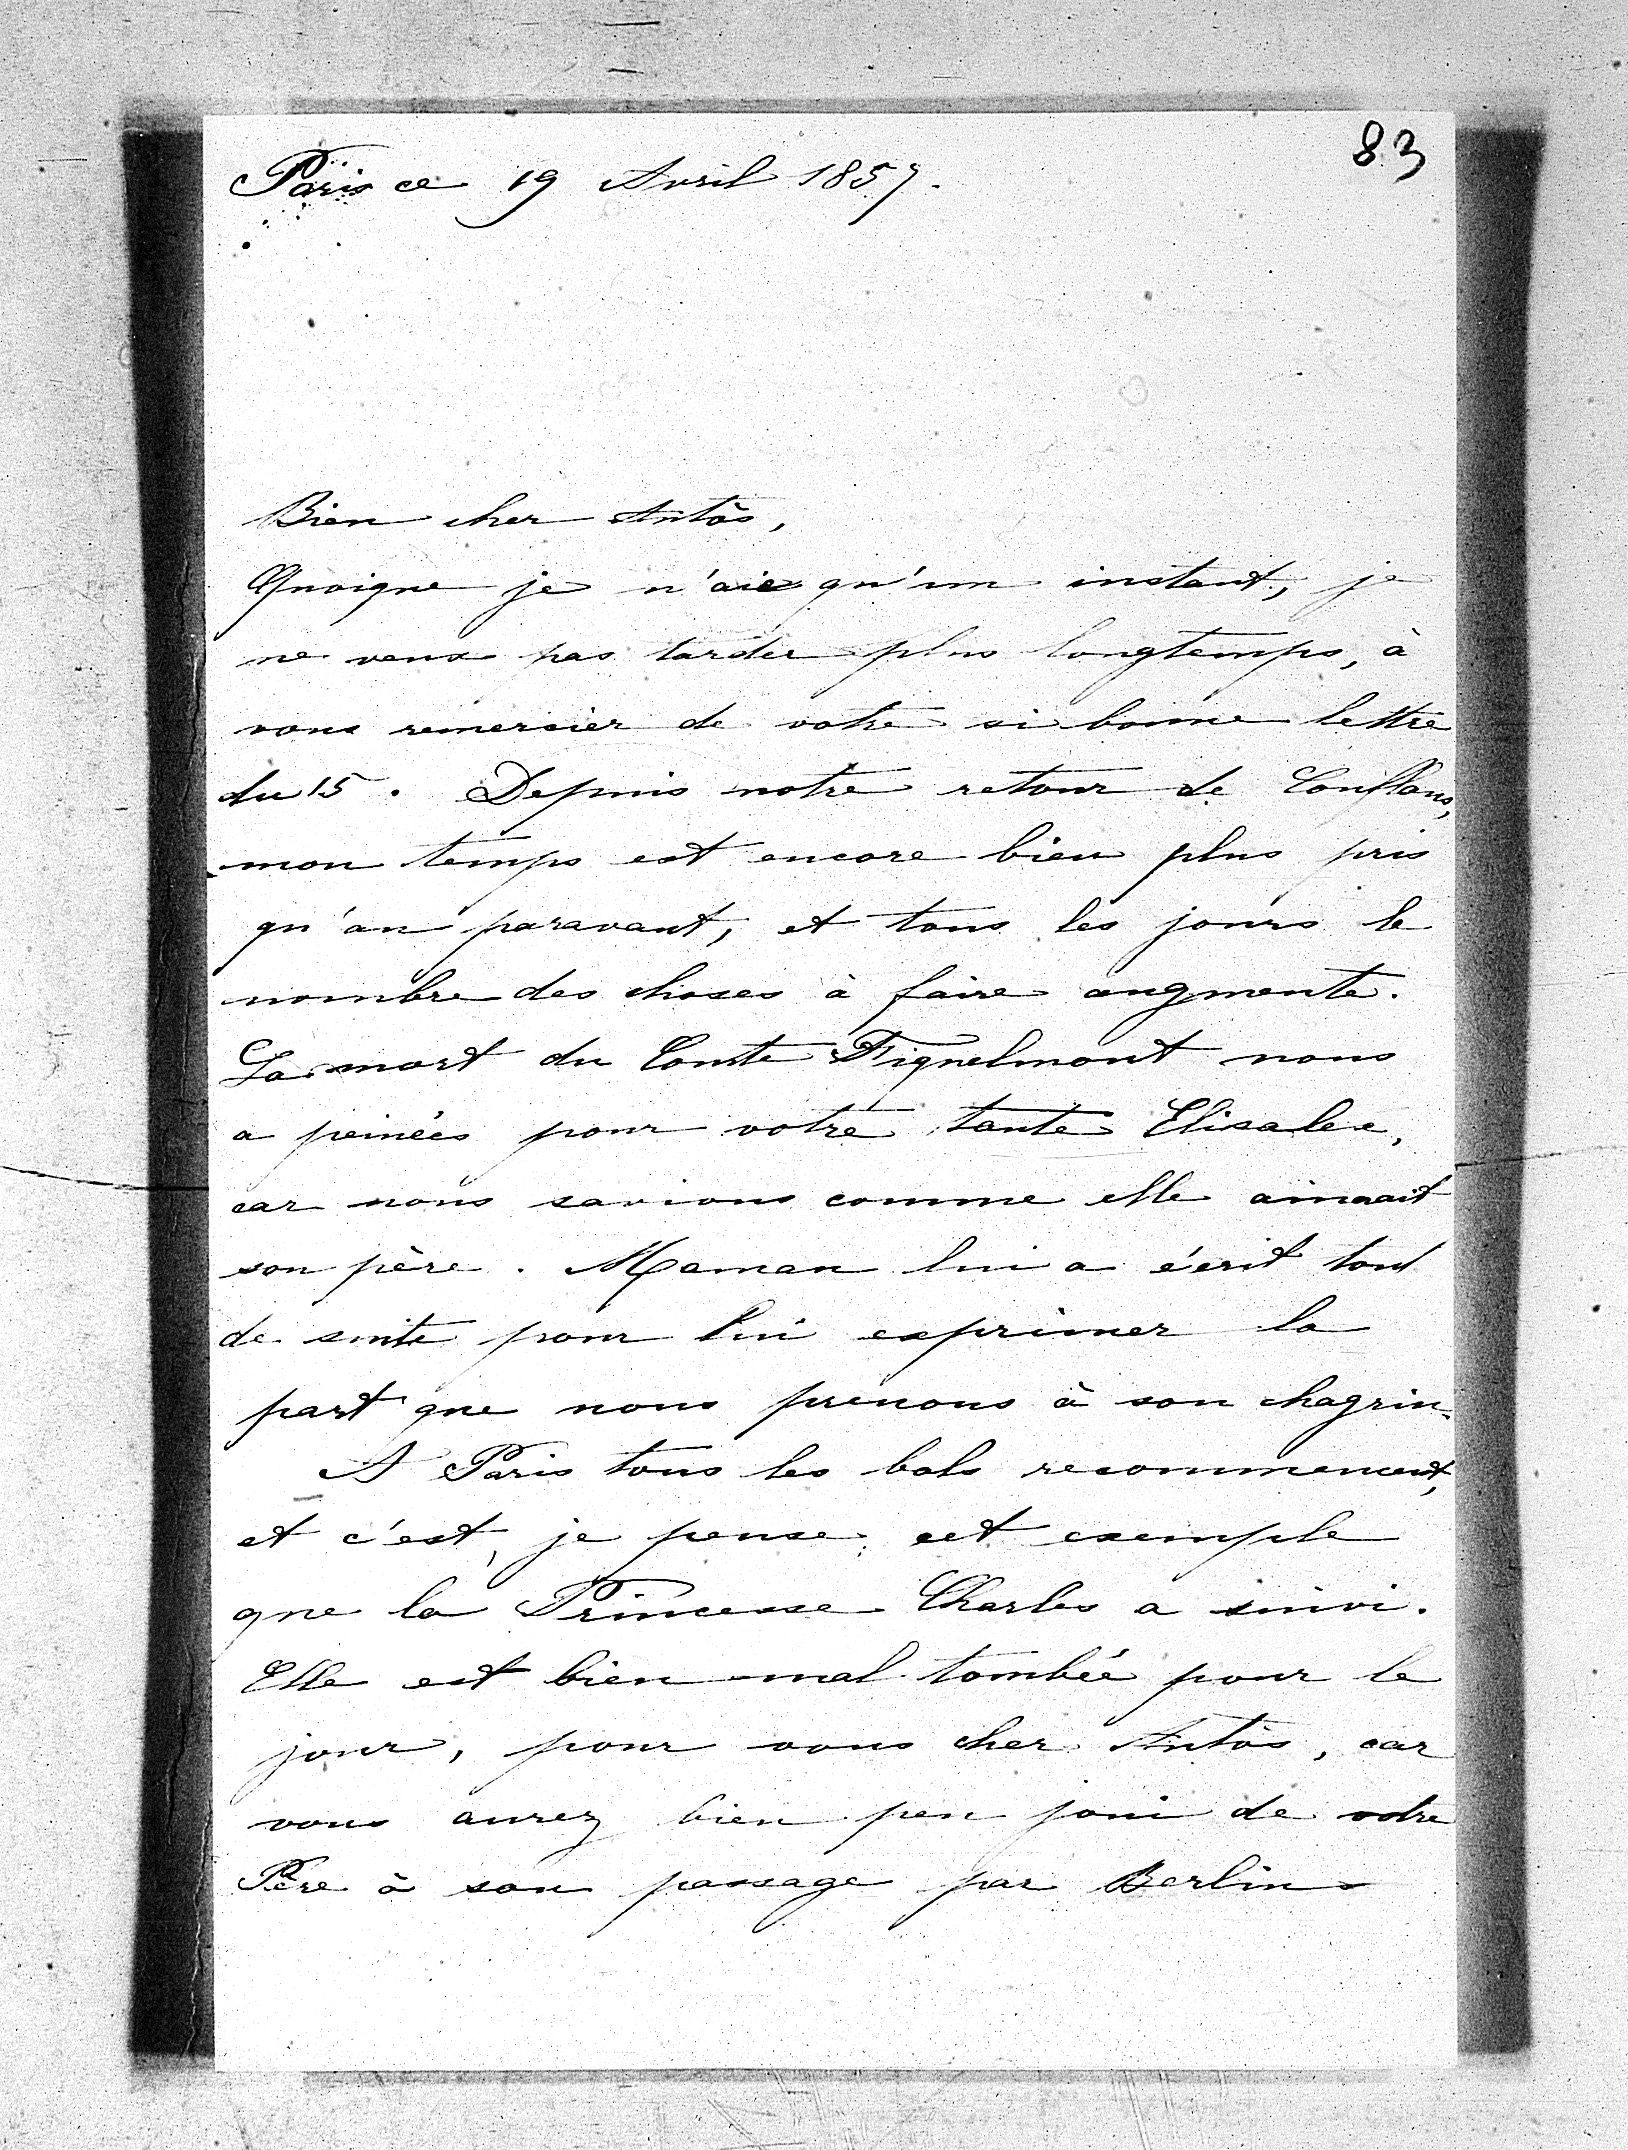 83
Paris ce 19 Avril 1857.
Bien cher Antôs,
Quoique je n'aie qu'un instant, je
ne veux pas tarder plus longtemps, à
vous remercier de votre si bonne lettre
du 15. Depuis notre retour de Conflans,
mon temps est encore bien plus pris
qu'au paravant, et tous les jours le
nombre des choses à faire augmente.
La mort du Comte Fiquelmont nous
a peinées pour votre tante Elisalex,
car nous savions comme elle aimait
son père. Maman lui a écrit tout
de suite pour lui exprimer la
part que nous prenons à son chagrin.
A Paris tous les bals recommencent,
et c'est, je pense, cet exemple
que la Princesse Charles a suivi.
Elle est bien mal tombée pour le
jour, pour vous cher Antôs, car
vous aurez bien peu joui de votre
Père à son passage par Berlin